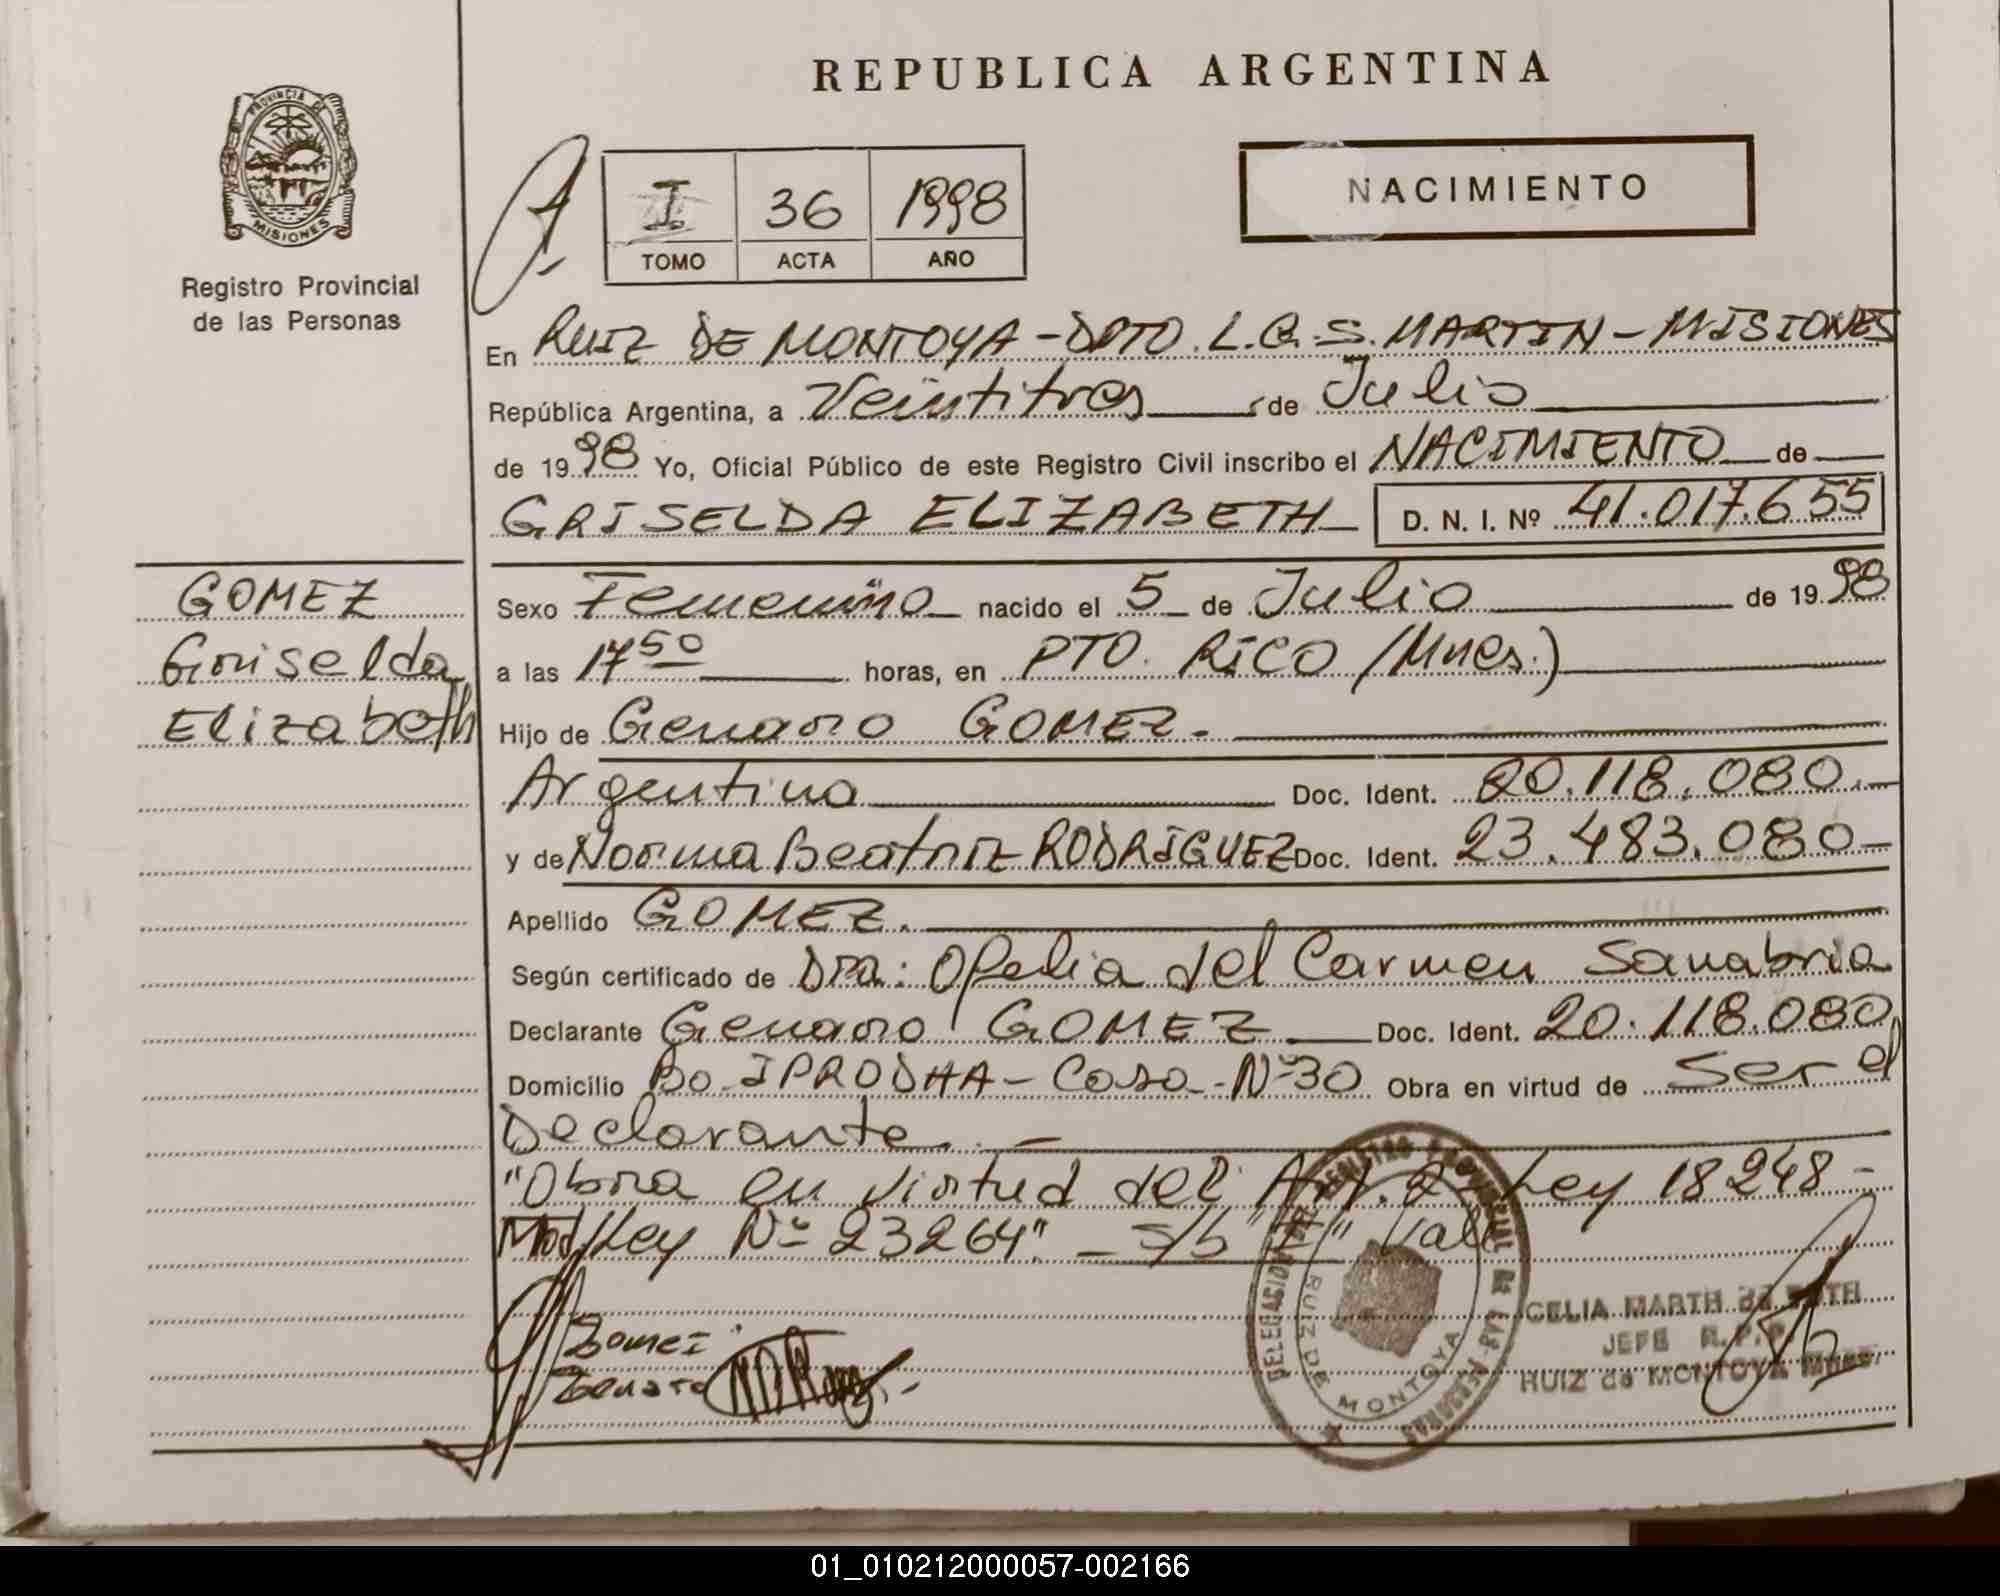 REPUBLICA ARGENTINA
PROVINCIA DE
MISIONES
Registro Provincial
de las Personas
I 36 1998
TOMO ACTA AÑO
NACIMIENTO
En RUIZ DE MONTOYA - DPTO. L.G.S. MARTIN - MISIONES
República Argentina, a Veintitres de Julio
de 1998 Yo, Oficial Público de este Registro Civil inscribo el NACIMIENTO de
GRISELDA ELIZABETH D. N. I. Nº 41.017.655
GOMEZ
Griselda
Elizabeth
Sexo Femenino nacido el 5 de Julio de 1998
a las 17 50 horas, en PTO. RICO (Mnes.)
Hijo de Genaro GOMEZ.
Argentina Doc. Ident. 20.118.080.-
y de Norma Beatriz RODRIGUEZ Doc. Ident. 23.483.080-
Apellido GOMEZ.
Según certificado de Dra: Ofelia del Carmen Sanabria
Declarante Genaro GOMEZ Doc. Ident. 20.118.080
Domicilio Bo. IPRODHA - Casa - Nº 30 Obra en virtud de Ser el
Declarante. -
"Obra en virtud del Art. 2 Ley 18248 -
Mod. Ley Nº 23264". - S/b "F" Vale
Gomez
Genaro
DELEGACION DEL REGISTRO PROVINCIAL DE LAS PERSONAS
RUIZ DE MONTOYA
CELIA MARTH DE
JEFE R.P.P.
RUIZ de MONTOYA Mnes.
01_010212000057-002166